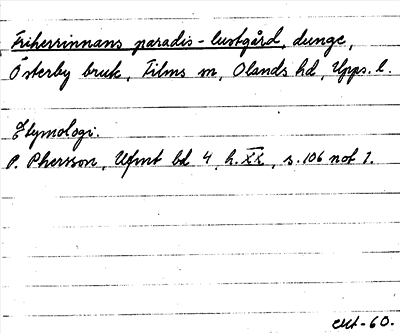 Friherrinnans paradis-lustgård, dunge,
Österby bruk, Films sn, Olands hd, Upps. l.
Etymologi.
P. Pherson, Ufmt bd 4, h. XX, s. 106 not 1.
-60.